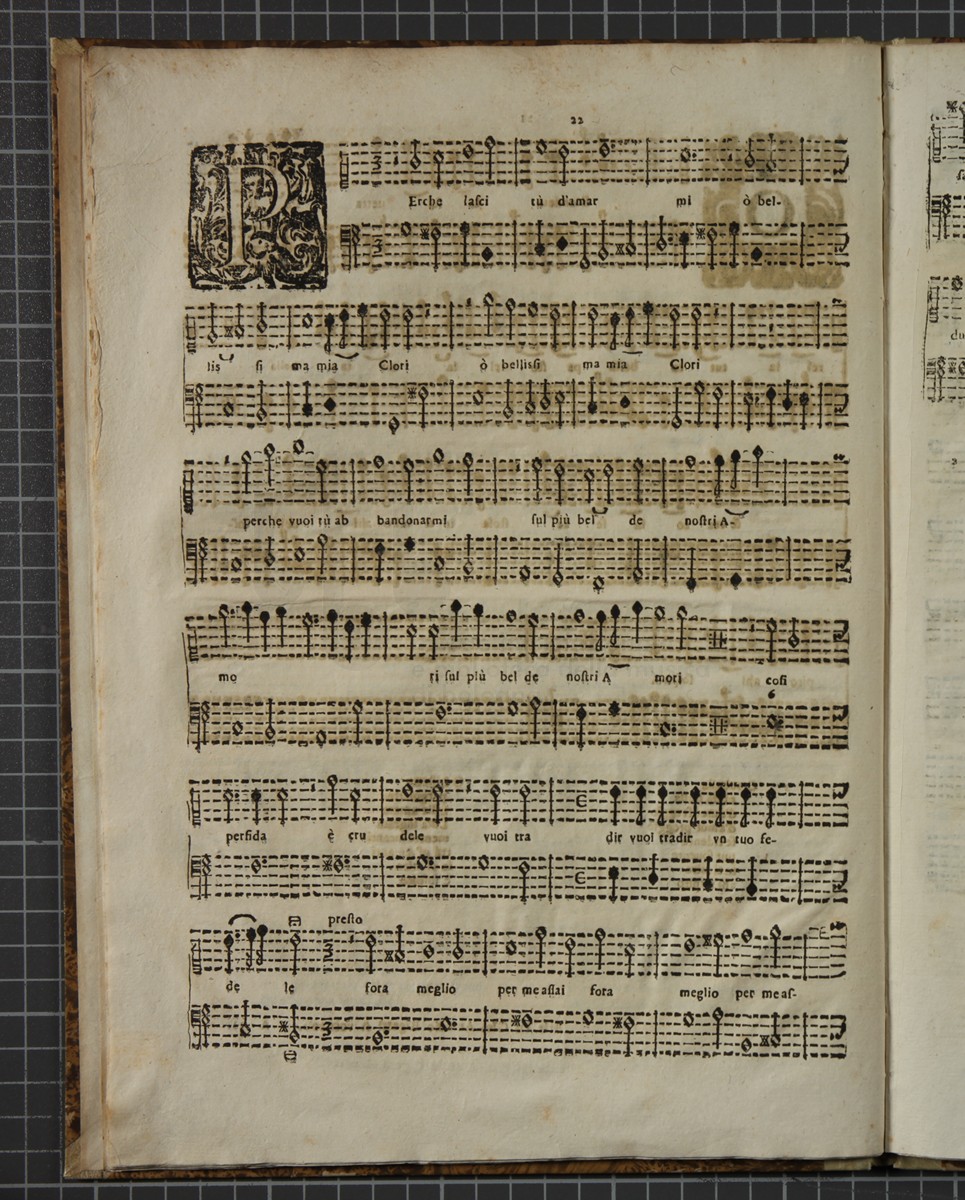 22
P
Erche lasci tù d'amar mi ò bel-
lis si ma mia Clori ò bellissi ma mia Clori
perche vuoi tù ab bandonarmi sul più bel de nostri A-
mo ri sul più bel de nostri A mori cosi
6
perfida è cru dele vuoi tra dir vuoi tradir vn tuo fe-
presto
de le fora meglio per me assai fora meglio per me as-